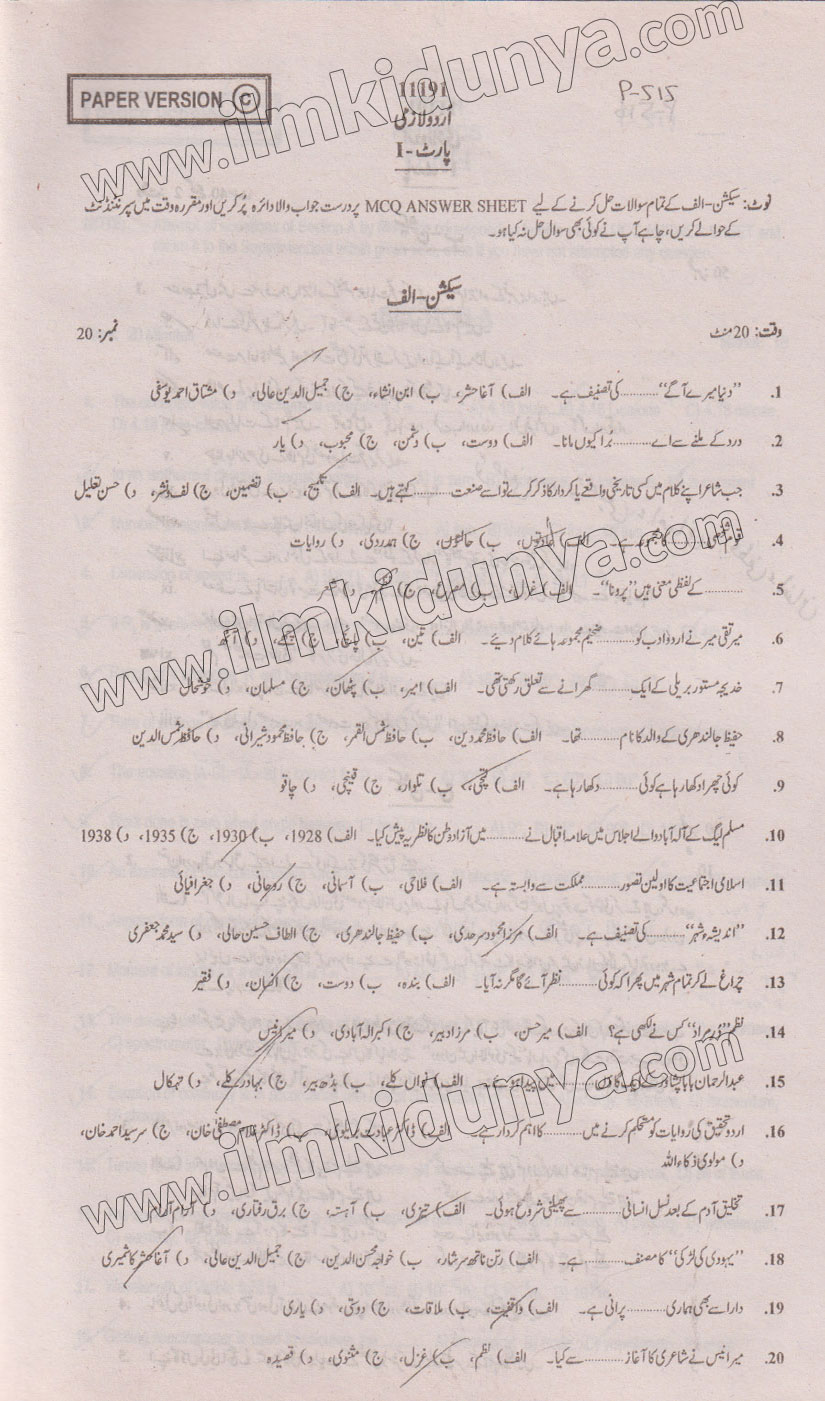 PAPER VERSION C
11191
P-515
اُردو لازمی
پارٹ-I
نوٹ: سیکشن-الف کے تمام سوالات حل کرنے کے لیے MCQ ANSWER SHEET پر درست جواب والا دائرہ پُر کریں اور مقررہ وقت میں سپرنٹنڈنٹ
کے حوالے کریں، چاہے آپ نے کوئی بھی سوال حل نہ کیا ہو۔
سیکشن-الف
وقت: 20 منٹ نمبر: 20
1. ’’دنیا میرے آگے‘‘............کی تصنیف ہے۔ الف) آغا حشر، ب) ابن انشاء، ج) جمیل الدین عالی، د) مشتاق احمد یوسفی
2. درد کے ملنے سے اے ............ بُرا کیوں مانا۔ الف) دوست، ب) دشمن، ج) محبوب، د) یار
3. جب شاعر اپنے کلام میں کسی تاریخی واقعے یا کردار کا ذکر کرے تو اسے صنعت ............ کہتے ہیں۔ الف) تلمیح، ب) تضمین، ج) لف ونشر، د) حسن تعلیل
4. ہے۔ الف) ب) حالتوں، ج) ہمدردی، د) روایات
5. ............ کے لفظی معنی ہیں ’’پرونا‘‘۔ الف) غزل، ب) ج) د) شعر
6. میر تقی میر نے اردو ادب کو ............ ضخیم مجموعہ ہائے کلام دیئے۔ الف) تین، ب) پانچ، ج) چھے، د) آٹھ
7. خدیجہ مستور بریلی کے ایک ............ گھرانے سے تعلق رکھتی تھی۔ الف) امیر، ب) پٹھان، ج) مسلمان، د) خوشحال
8. حفیظ جالندھری کے والد کا نام ............ تھا۔ الف) حافظ محمد دین، ب) حافظ شمس القمر، ج) حافظ محمود شیرانی، د) حافظ شمس الدین
9. کوئی چھرا دکھا رہا ہے کوئی ............ دکھا رہا ہے۔ الف) قمچی، ب) تلوار، ج) قینچی، د) چاقو
10. مسلم لیگ کے الٰہ آباد والے اجلاس میں علامہ اقبال نے ............ میں آزاد وطن کا نظریہ پیش کیا۔ الف) 1928، ب) 1930، ج) 1935، د) 1938
11. اسلامی اجتماعیت کا اولین تصور ............ مملکت سے وابستہ ہے۔ الف) فلاحی، ب) آسمانی، ج) روحانی، د) جغرافیائی
12. ’’اندیشہء شہر‘‘ ............ کی تصنیف ہے۔ الف) مرزا محمود سرحدی، ب) حفیظ جالندھری، ج) الطاف حسین حالی، د) سید محمد جعفری
13. چراغ لے کر تمام شہر میں پھرا کہ کوئی ............ نظر آئے گا مگر نہ آیا۔ الف) بندہ، ب) دوست، ج) انسان، د) فقیر
14. نظم کس نے لکھی ہے؟ الف) میر حسن، ب) مرزا دبیر، ج) اکبر الہ آبادی، د) میر انیس
15. عبدالرحمان بابا پشاور کے ایک گاؤں ............ میں پیدا ہوئے۔ الف) نواں کلے، ب) بڈھ بیر، ج) بہادر کلے، د) تہکال
16. اردو تحقیق کی روایات کو مستحکم کرنے میں ............ کا اہم کردار ہے۔ الف) ڈاکٹر عبادت بریلوی، ب) ڈاکٹر غلام مصطفیٰ خان، ج) سر سید احمد خان،
د) مولوی ذکاء اللہ
17. تخلیق آدم کے بعد نسل انسانی ............ سے پھیلنی شروع ہوئی۔ الف) تیزی، ب) آہستہ، ج) برق رفتاری، د) آرام آرام
18. ’’یہودی کی لڑکی‘‘ کا مصنف ............ ہے۔ الف) رتن ناتھ سرشار، ب) خواجہ محسن الدین، ج) جمیل الدین عالی، د) آغا حشر کاشمیری
19. دارا سے بھی ہماری ............ پرانی ہے۔ الف) واقفیت، ب) ملاقات، ج) دوستی، د) یاری
20. میر انیس نے شاعری کا آغاز ............ سے کیا۔ الف) نظم، ب) غزل، ج) مثنوی، د) قصیدہ
www.ilmkidunya.com
www.ilmkidunya.com
www.ilmkidunya.com